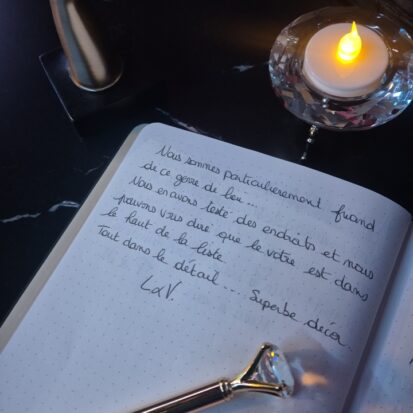 Nous sommes particulièrement friand
de ce genre de lieu...
Nous en avons testé des endroits et nous
pouvons vous dire que le votre est dans
le haut de la liste
Tout dans le détail.... Superbe décor.
L&V.